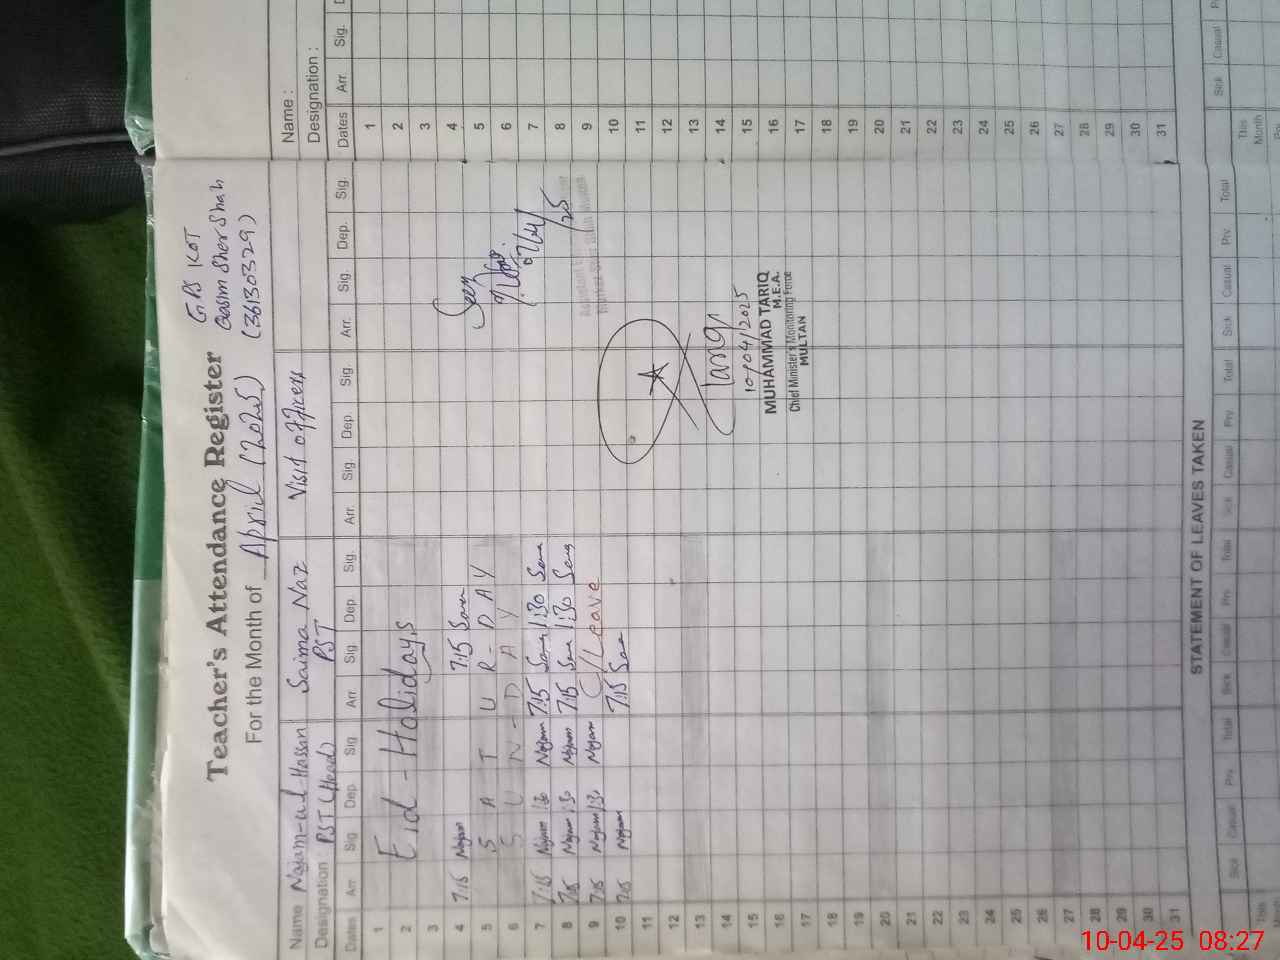 Teacher's Attendance Register
GPS KOT
Qasim Sher Shah
(36130329)
For the Month of April (2025)
Name Najam-ul-Hassan Saima Naz Visit officers
Designation PST (Head) PST
Dates Arr Sig Dep. Sig Arr. Sig Dep Sig. Arr. Sig. Dep. Sig. Arr. Sig. Dep. Sig.
1
2 Eid - Holidays
3
4 7:15 Najam 7:15
5 S A T U R - D A Y
6 S U N - D A Y
7 7:15 Najam 1:30 Najam 7:15 1:30
8 7:15 Najam 1:30 Najam 7:15 1:30
9 7:15 Najam 1:30 Najam C/Leave
10 7:15 Najam 7:15
11
12
13
14
15
16
17
18
19
20
21
22
23
24
25
26
27
28
29
30
31
Seen
07/04/25
A
Tariq
10/04/2025
MUHAMMAD TARIQ
M.E.A.
Chief Minister's Monitoring Force
MULTAN
STATEMENT OF LEAVES TAKEN
Sick Casual Prv. Total Sick Casual Prv. Total Sick Casual Prv. Total Sick Casual Prv. Total
This
Name :
Designation :
Dates Arr. Sig.
1
2
3
4
5
6
7
8
9
10
11
12
13
14
15
16
17
18
19
20
21
22
23
24
25
26
27
28
29
30
31
Sick Casual
This
Month
10-04-25 08:27